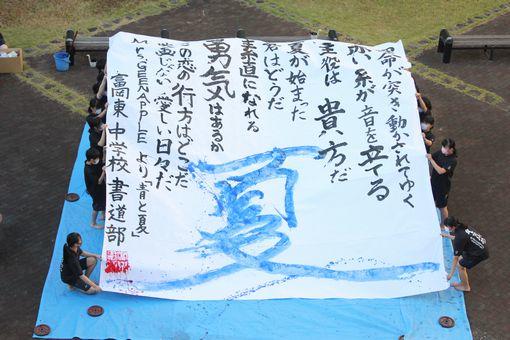 運命が突き動かされてゆく
赤い糸が音を立てる
主役は貴方だ
夏が始まった
君はどうだ
素直になれる
勇気はあるか
恋の行方はどこだ
愛しい日々だ
GREENAPPLEより「青と夏」
富岡東中学校 書道部
夏